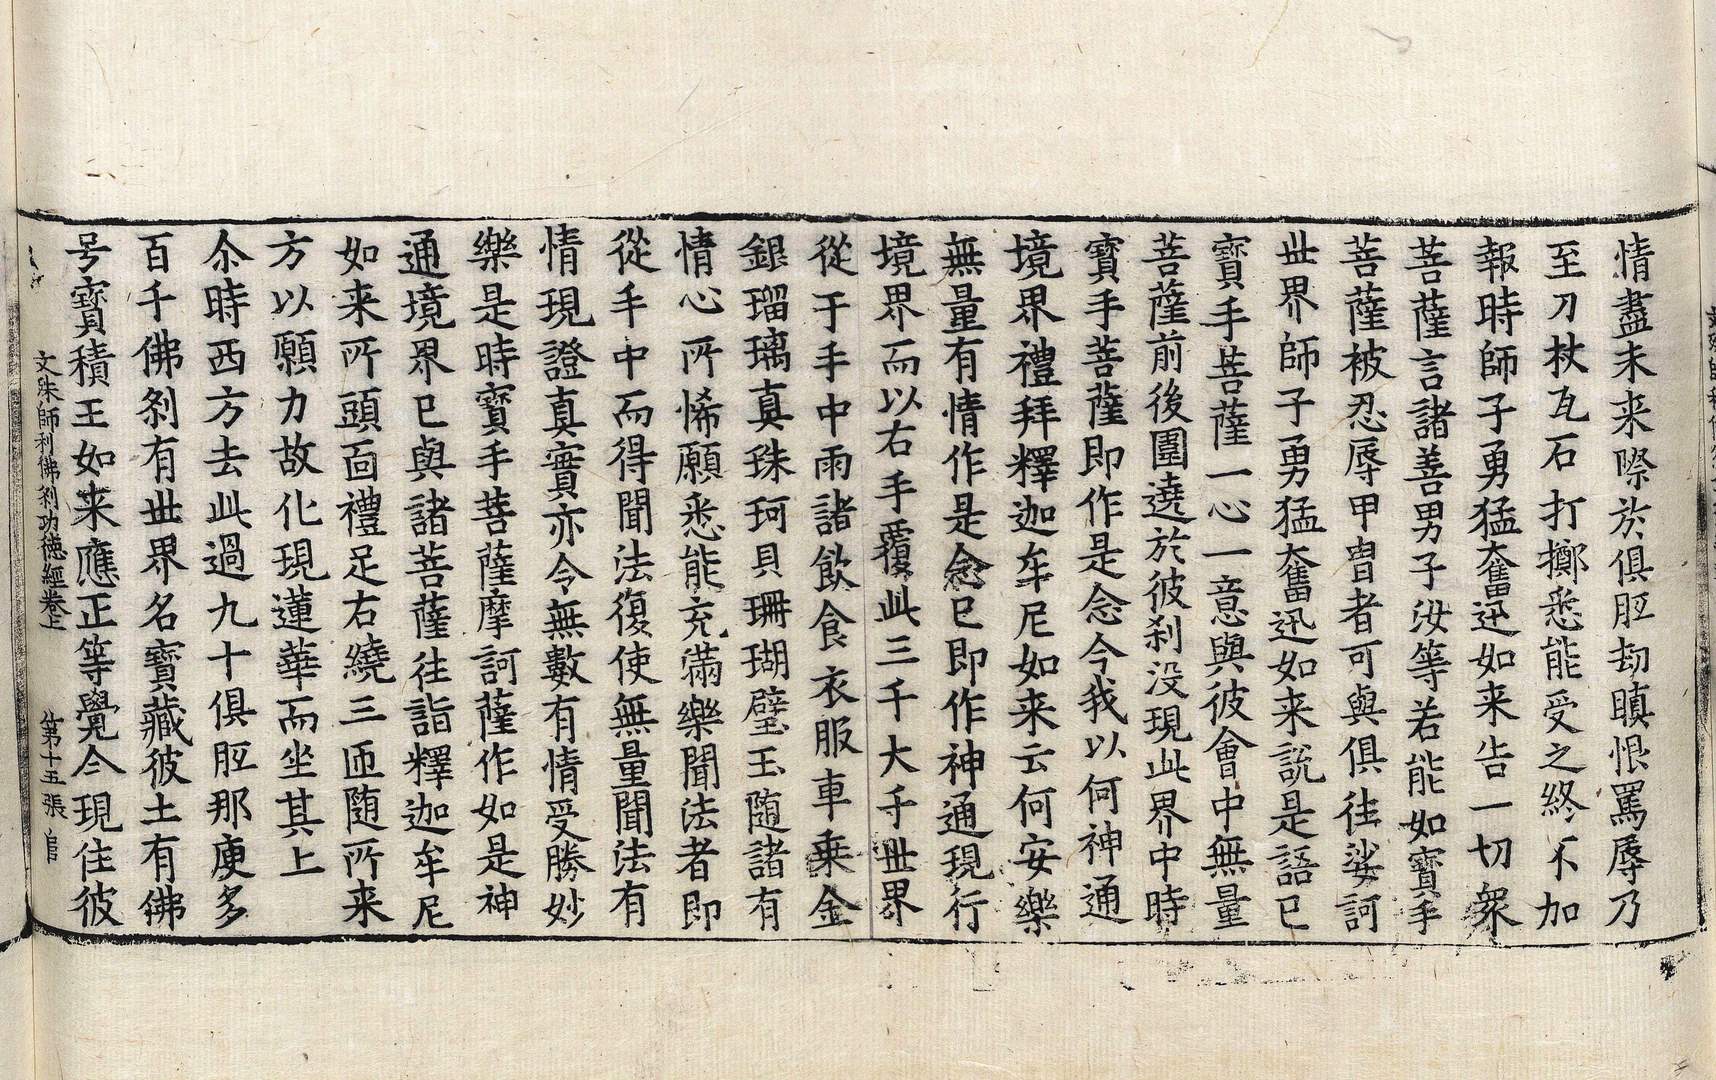 情盡未来際於俱胝劫瞋恨罵辱乃
至刀杖瓦石打擲悉能受之終不加
報時師子勇猛奮迅如来告一切衆
菩薩言諸善男子汝等若能如寶手
菩薩被忍辱甲胄者可與俱往娑訶
世界師子勇猛奮迅如来說是語已
寶手菩薩一心一意與彼會中無量
菩薩前後圍遶於彼刹没現此界中時
寶手菩薩即作是念今我以何神通
境界禮拜釋迦牟尼如来云何安樂
無量有情作是念已即作神通現行
境界而以右手覆此三千大千世界
從于手中雨諸飲食衣服車乗金
銀瑠璃真珠珂貝珊瑚璧玉随諸有
情心所悕願悉能充滿樂聞法者即
從手中而得聞法復使無量聞法有
情現證真實亦令無數有情受勝妙
樂是時寶手菩薩摩訶薩作如是神
通境界已與諸菩薩往詣釋迦牟尼
如来所頭面禮足右繞三匝随所来
方以願力故化現蓮華而坐其上
尒時西方去此過九十俱胝那庾多
百千佛刹有世界名寶藏彼土有佛
号寶積王如来應正等覺今現住彼
文殊師利佛刹功德經卷上 第十五張